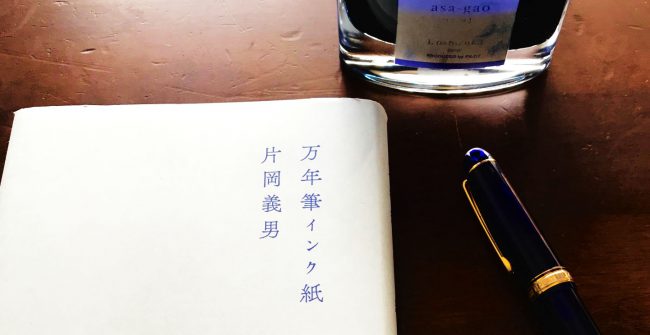 asa-gao
PRODUCED by PILOT
万年筆インク紙
片岡義男